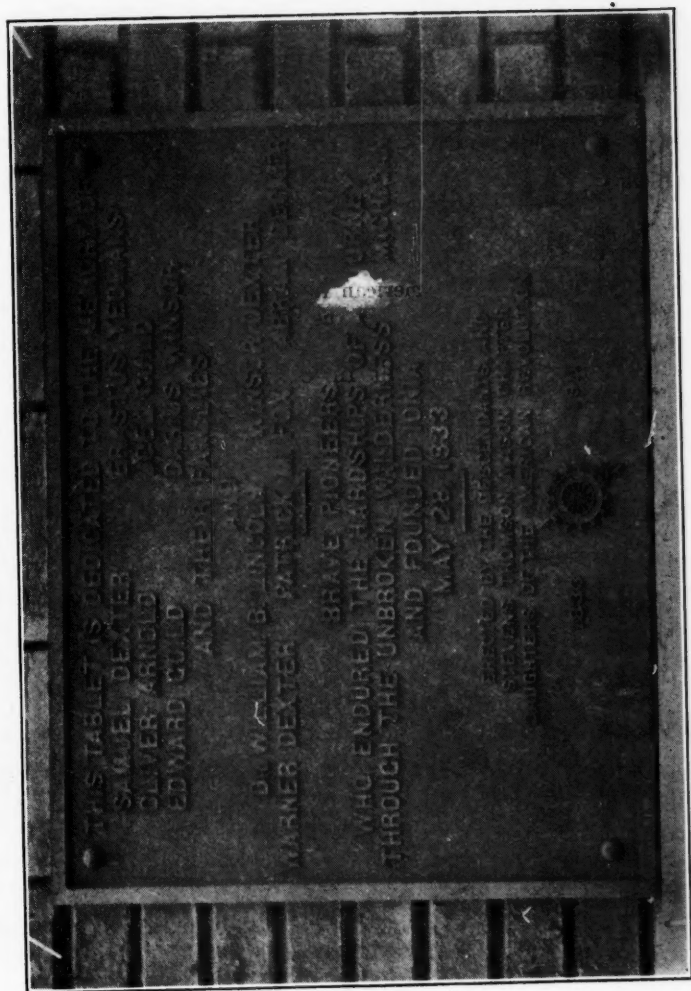 THIS TABLET IS DEDICATED TO THE MEMORY OF
SAMUEL DEXTER ERASTUS YEOMANS
OLIVER ARNOLD
EDWARD GUILD WINSOR
AND THEIR FAMILIES
AND
DR. WILLIAM B. LINCOLN WINSOR DEXTER
WARNER DEXTER PATRICK FOX DEXTER
BRAVE PIONEERS
WHO ENDURED THE HARDSHIPS OF
THROUGH THE UNBROKEN WILDERNESS
AND FOUNDED IONIA
MAY 28 1833
ERECTED BY THE DESCENDANTS AND
STEVENS THOMSON MASON CHAPTER
DAUGHTERS OF THE AMERICAN REVOLUTION
1833